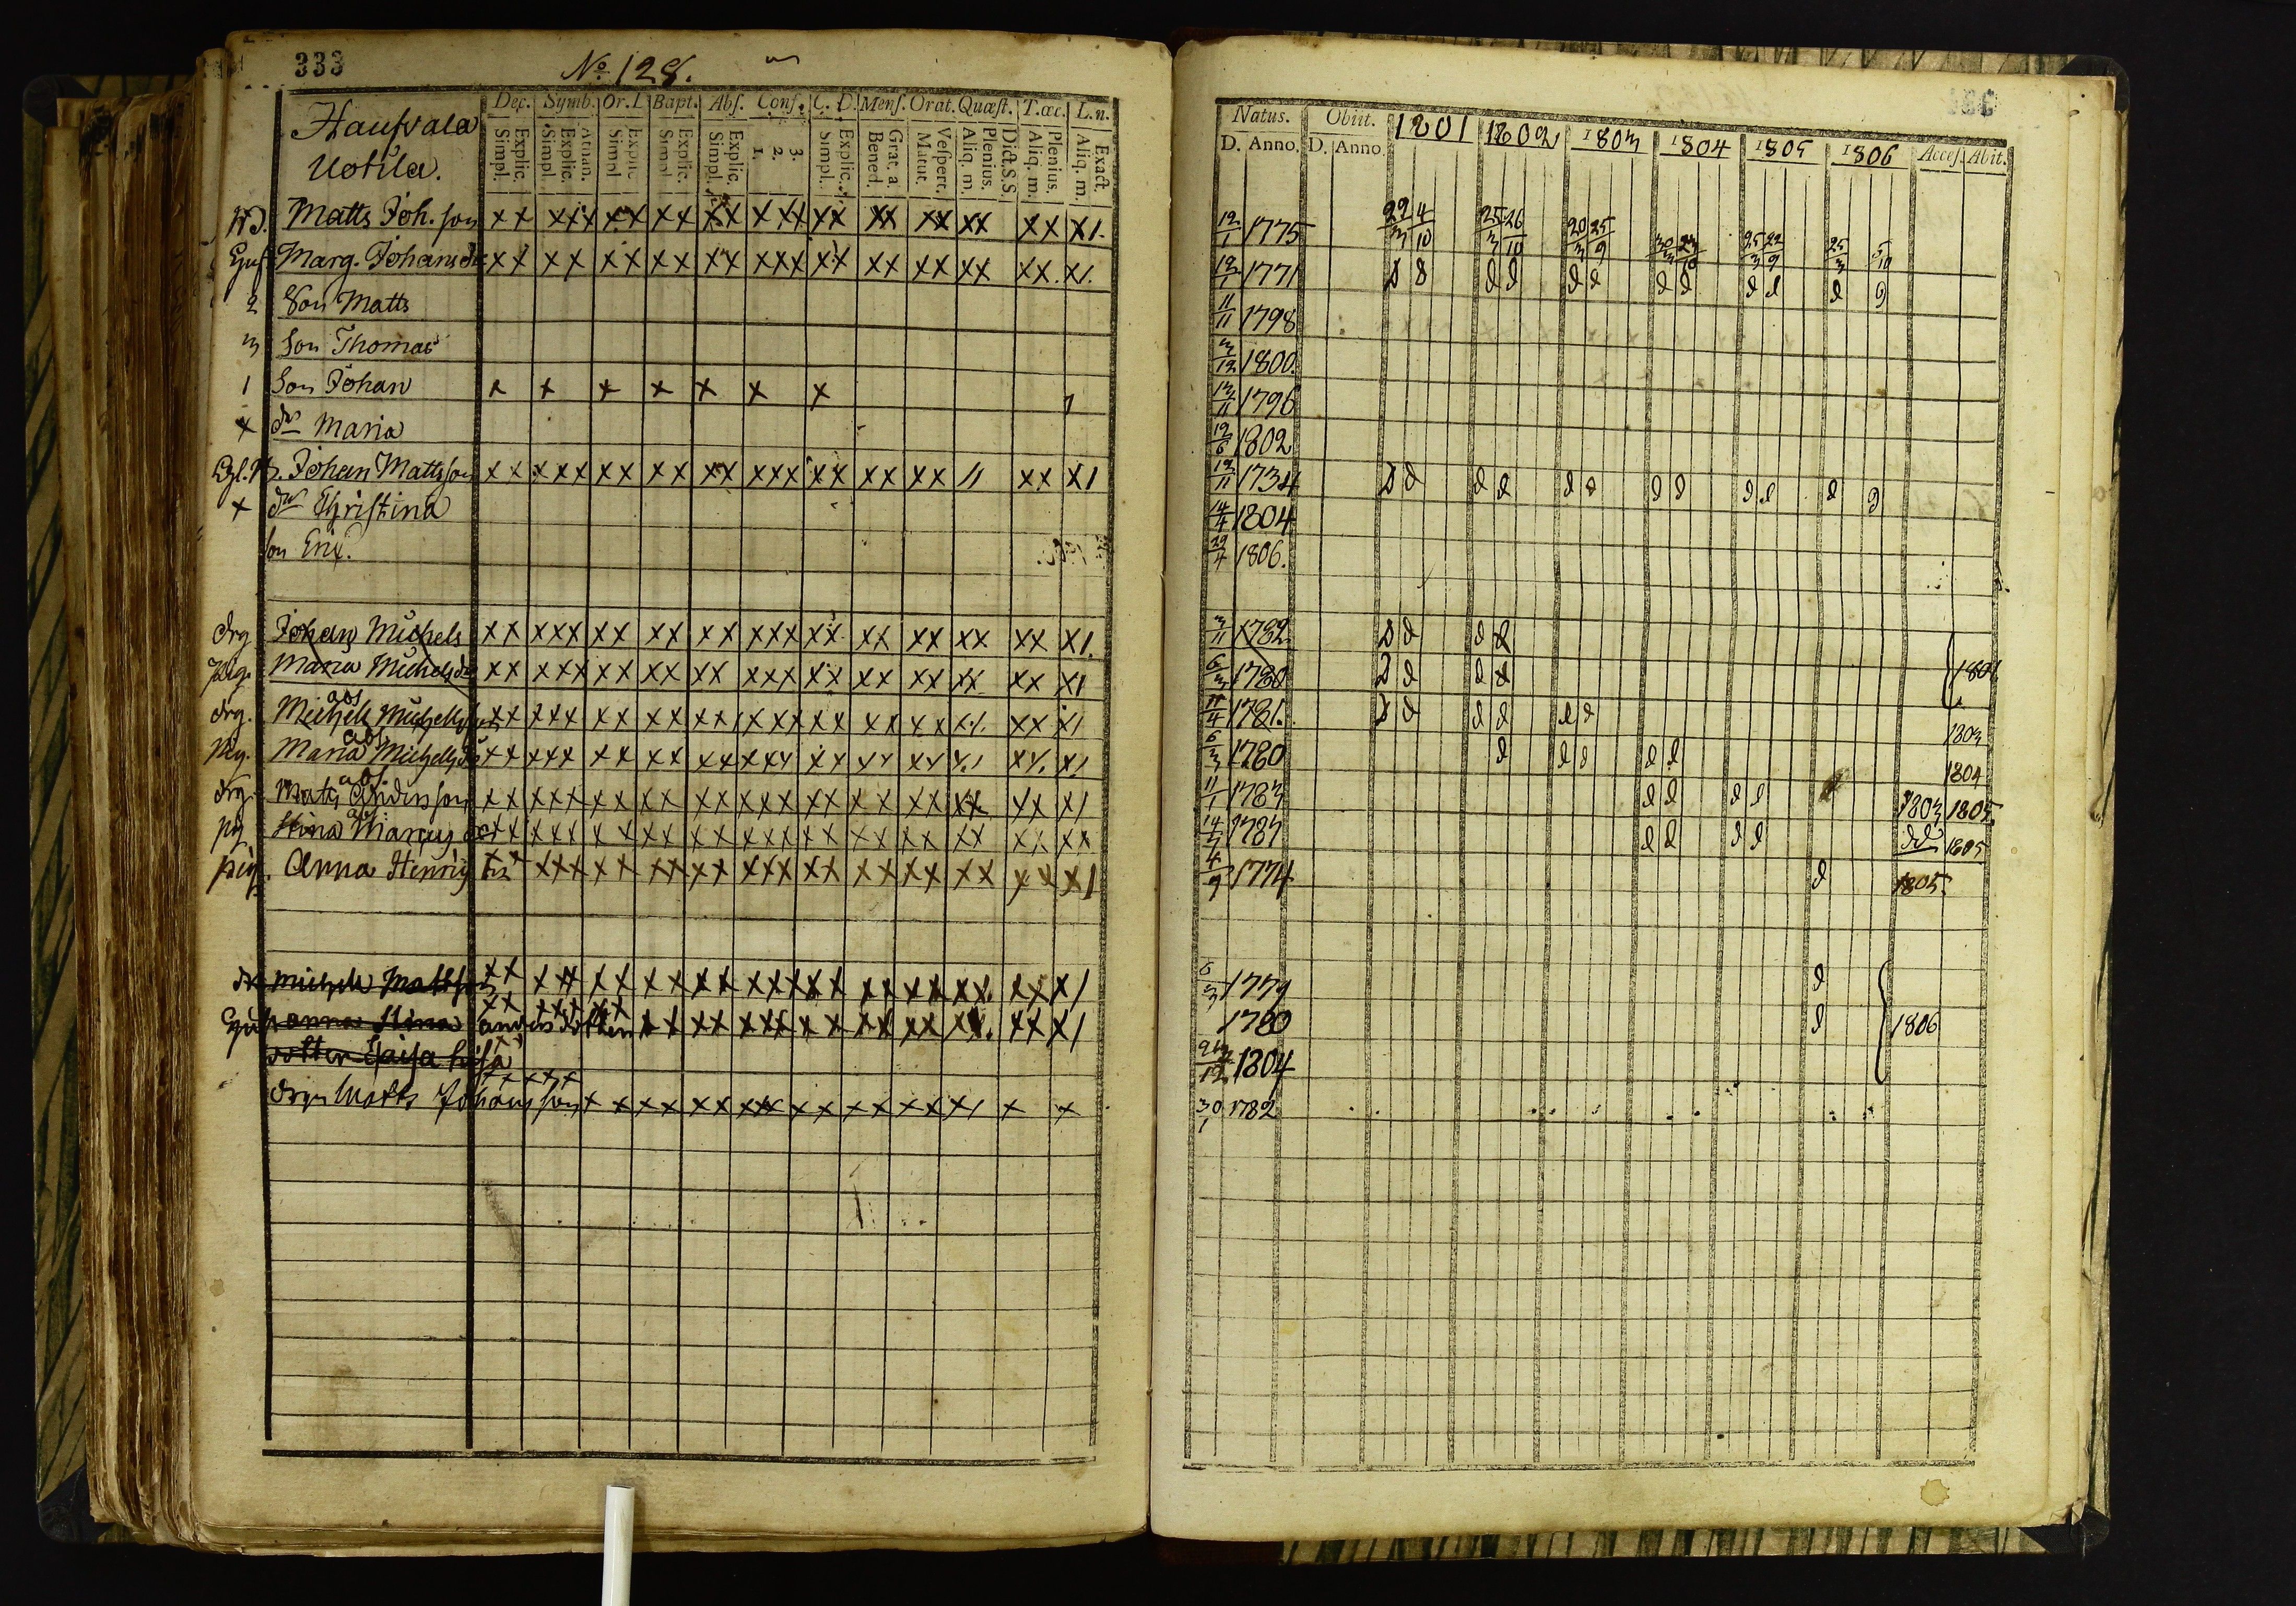 333
No 128.
Haufvala
Uotila.
Dec. Symb. Or. D Bapt. Abs. Conf. C. D. Mens. Orat. Quæst. T. œc. L. n.
Explic. Simpl. Athan. Explic. Simpl. Explic. Simpl. Explic. Simpl. Explic. Simpl. 3. 2. 1. Explic. Simpl. Grat. a. Bened. Vespert. Matut. Dict. S. S. Plenius. Aliq. m. Plenius. Aliq. m. Exact. Aliq. m.
Matts Joh. son xx xxx xx xx xx xxx xx xx xx xx xx x1.
Marg. Johansdr xx xx xx xx xx xxx xx xx xx xx xx. x1.
2 Son Matts
3 Son Thomas
1 Son Johan x x x x x x x 1
x dr Maria
Johan Mattsson xx xxx xx xx xx xxx xx xx xx 11 xx x1
x dr Christina
son Eric.
drg Johan Michels xx xxx xx xx xx xxx xx xx xx xx xx x1.
pig. Maria Michelsdr xx xxx xx xx xx xxx xx xx xx xx xx x1
abs
drg. Michel Michelsson xx xxx xx xx xx xxx xx xx xx x.1. xx x1
abs.
pig. Maria Michelsdr xx xxx xx xx xx xxx xx xx xx x.1 xx. x1
abs.
drg. Matts Andersson xx xxx xx xx xx xxx xx xx xx xx xx x1
abs.
pig Stina Marcus dr xx xxx xx xx xx xxx xx xx xx xx xx xx
pig. Anna Henrics dr xx xxx xx xx xx xxx xx xx xx xx xx x1
dr Michel Mattsson xx xx xx xx xx xxx xx xx xx xx. xx x1
Anna Stina Andersdotter xx xxx xx xx xx xxx xx xx xx xx. xx x1
dotter Caisa Lisa
drgn Matts Johansson x x xx xx xxx xx xx xx x1 x x
Natus. Obiit. 1801 1802 1803 1804 1805 1806 Access. Abit.
D. Anno. D. Anno.
12/1 1775 22/3 4/10 25/3 26/10 20/3 25/9 30/3 23/10 25/3 22/9 25/3 5/10
1771
11/11 1798
3/12 1800.
13/11 1796
12/6 1802
12/11 1734
14/4 1804
29/4 1806.
3/11 1782
6/3 1780 1802
4 1781. 1803
6/3 1780 1804
11/1 1783 1803 1805.
14 1787 dd 1805
4/9 1774 1805.
6/3 1779
1780 1806
12 1804
30/1 1782